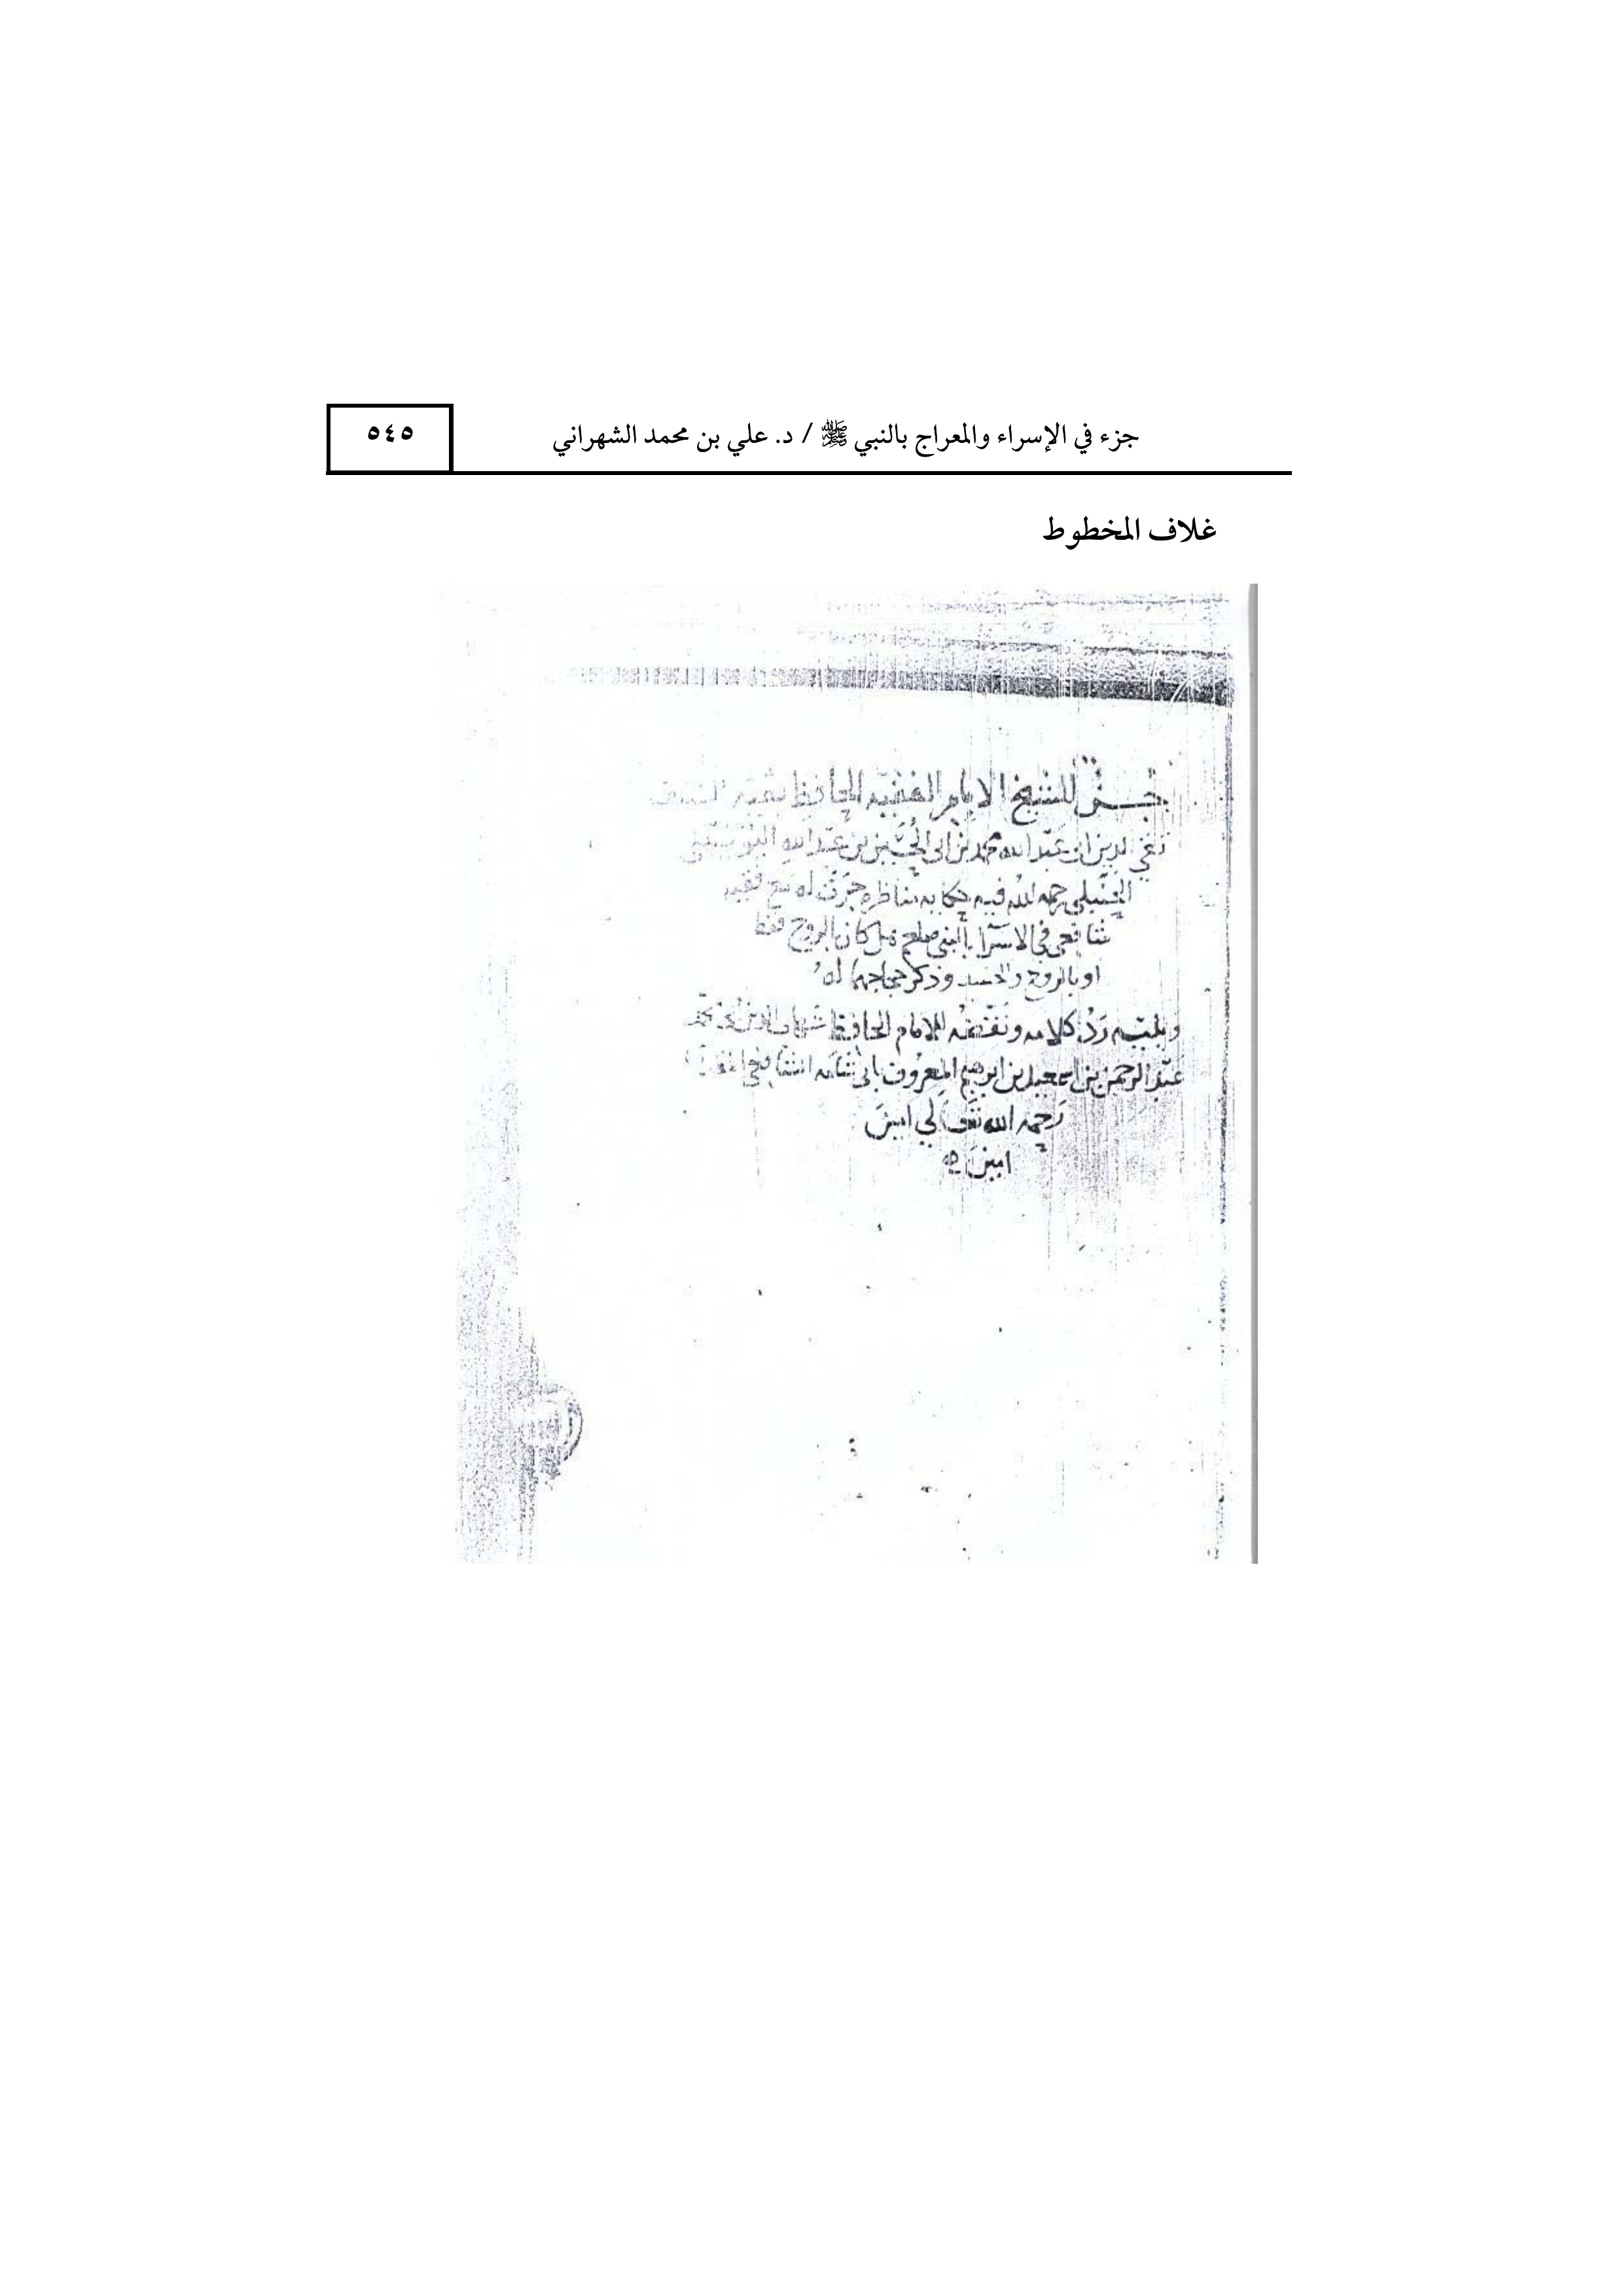 جزء في الإسراء والمعراج بالنبي ﷺ / د. علي بن محمد الشهراني
٥٤٥
غلاف المخطوط
جزء للشيخ الامام الفقيه الحافظ بقية السلف
تقي الدين ابي عبد الله محمد بن ابي الحسين بن عبد الله اليونيني
الحنبلي رحمه الله فيه حكاية مناظره جرت له مع فقيه
شافعي في الاسرا بالنبي صلعم هل كان بالروح فقط
او بالروح والجسد وذكر حجاجهما له
ويليه رد كلامه ونقضه للامام الحافظ شهاب الدين ابي محمد
عبد الرحمن بن اسمعيل بن ابرهيم المعروف بابي شامه الشافعي
رحمه الله تعالى امين
امين